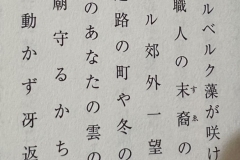 ルベルク藻が咲け
職人の末裔の
ル郊外一望
路の町や冬の
のあなたの雲の
廟守るかち
動かず冴返